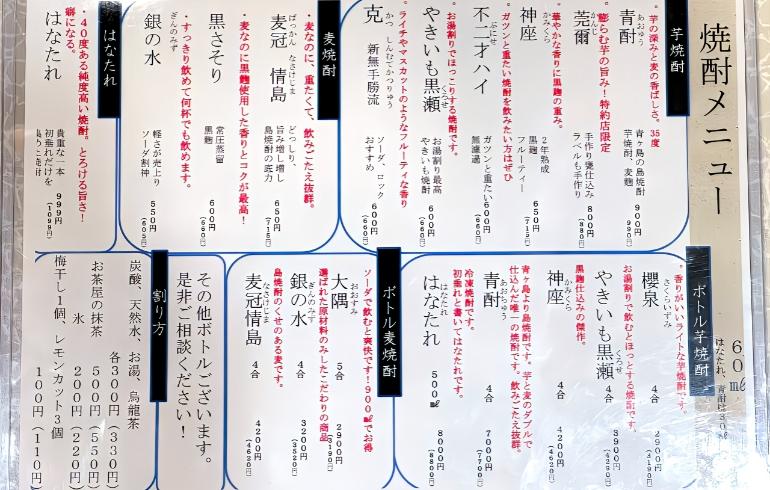 焼酎メニュー
60㎖
はなたれ、青酎は30㎖
芋焼酎
・芋の深みと麦の香ばしさ。35度
青酎
あおちゅう
青ヶ島の島焼酎
芋焼酎、麦麹
900円
(990円)
・膨らむ芋の旨み!特約店限定
莞爾
かんじ
手作り甕仕込み
ラベルも手作り
800円
(880円)
・華やかな香りに黒麹の重み。
神座
かみくら
2年熟成
黒麹 フルーティー
650円
(715円)
・ガツンと重たい焼酎を飲みたい方はぜひ
不二才ハイ
ぶにせ
ガツンと重たい
無濾過
600円
(660円)
・お湯割りでほっこりする焼酎です。
やきいも黒瀬
くろせ
お湯割り最高
やきいも焼酎
600円
(660円)
・ライチやマスカットのようなフルーティな香り
克 新無手勝流
かつ しんむてかつりゅう
ソーダ、ロック
おすすめ
600円
(660円)
麦焼酎
・麦なのに、重たくて、飲みごたえ抜群。
麦冠 情島
ばっかん なさけじま
どっしり、
旨み増し増し
島焼酎の底力
650円
(715円)
・麦なのに黒麹使用した香りとコクが最高!
黒さそり
常圧蒸留
黒麹
600円
(660円)
・すっきり飲めて何杯でも飲めます。
銀の水
ぎんのみず
軽さが売り
ソーダ割神
550円
(605円)
はなたれ
・40度ある純度高い焼酎。とろける旨さ!
癖になる。
はなたれ
貴重な一本
初垂れだけを
集めた焼酎
999円
(1099円)
ボトル芋焼酎
・香りがいいライトな芋焼酎です。
櫻泉
さくらいずみ
4合
2900円
(3190円)
お湯割りで飲むとほっとする焼酎です。
やきいも黒瀬
くろせ
4合
3900円
(4290円)
黒麹仕込みの傑作。
神座
かみくら
4合
4200円
(4620円)
青ヶ島より島焼酎です。芋と麦のダブルで
仕込んだ唯一の焼酎です。飲みごたえ抜群。
青酎
あおちゅう
4合
7000円
(7700円)
冷凍焼酎です。
初垂れと書いてはなたれです。
はなたれ
はなたれ
500㎖
8000円
(8800円)
ボトル麦焼酎
ソーダで飲むと爽快です!900㎖でお得
大隅
おおすみ
5合
2900円
(3190円)
選ばれた原材料のみしたこだわりの商品
銀の水
ぎんのみず
4合
3200円
(3520円)
島焼酎のくせのある麦です。
麦冠情島
なさけじま
4合
4200円
(4620円)
その他ボトルございます。
是非ご相談ください!
割り方
炭酸、天然水、お湯、烏龍茶
各300円(330円)
お茶屋の抹茶
500円(550円)
氷
200円(220円)
梅干し1個、レモンカット3個
100円(110円)